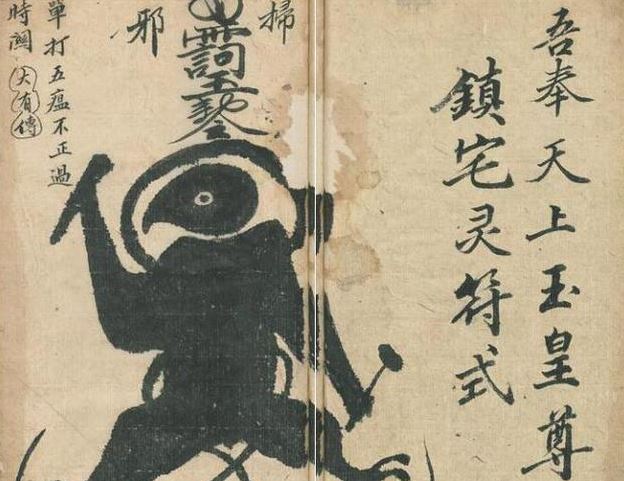 吾奉天上玉皇尊
鎮宅灵符式
掃
邪
單打五瘟不正過
時闗大有傳